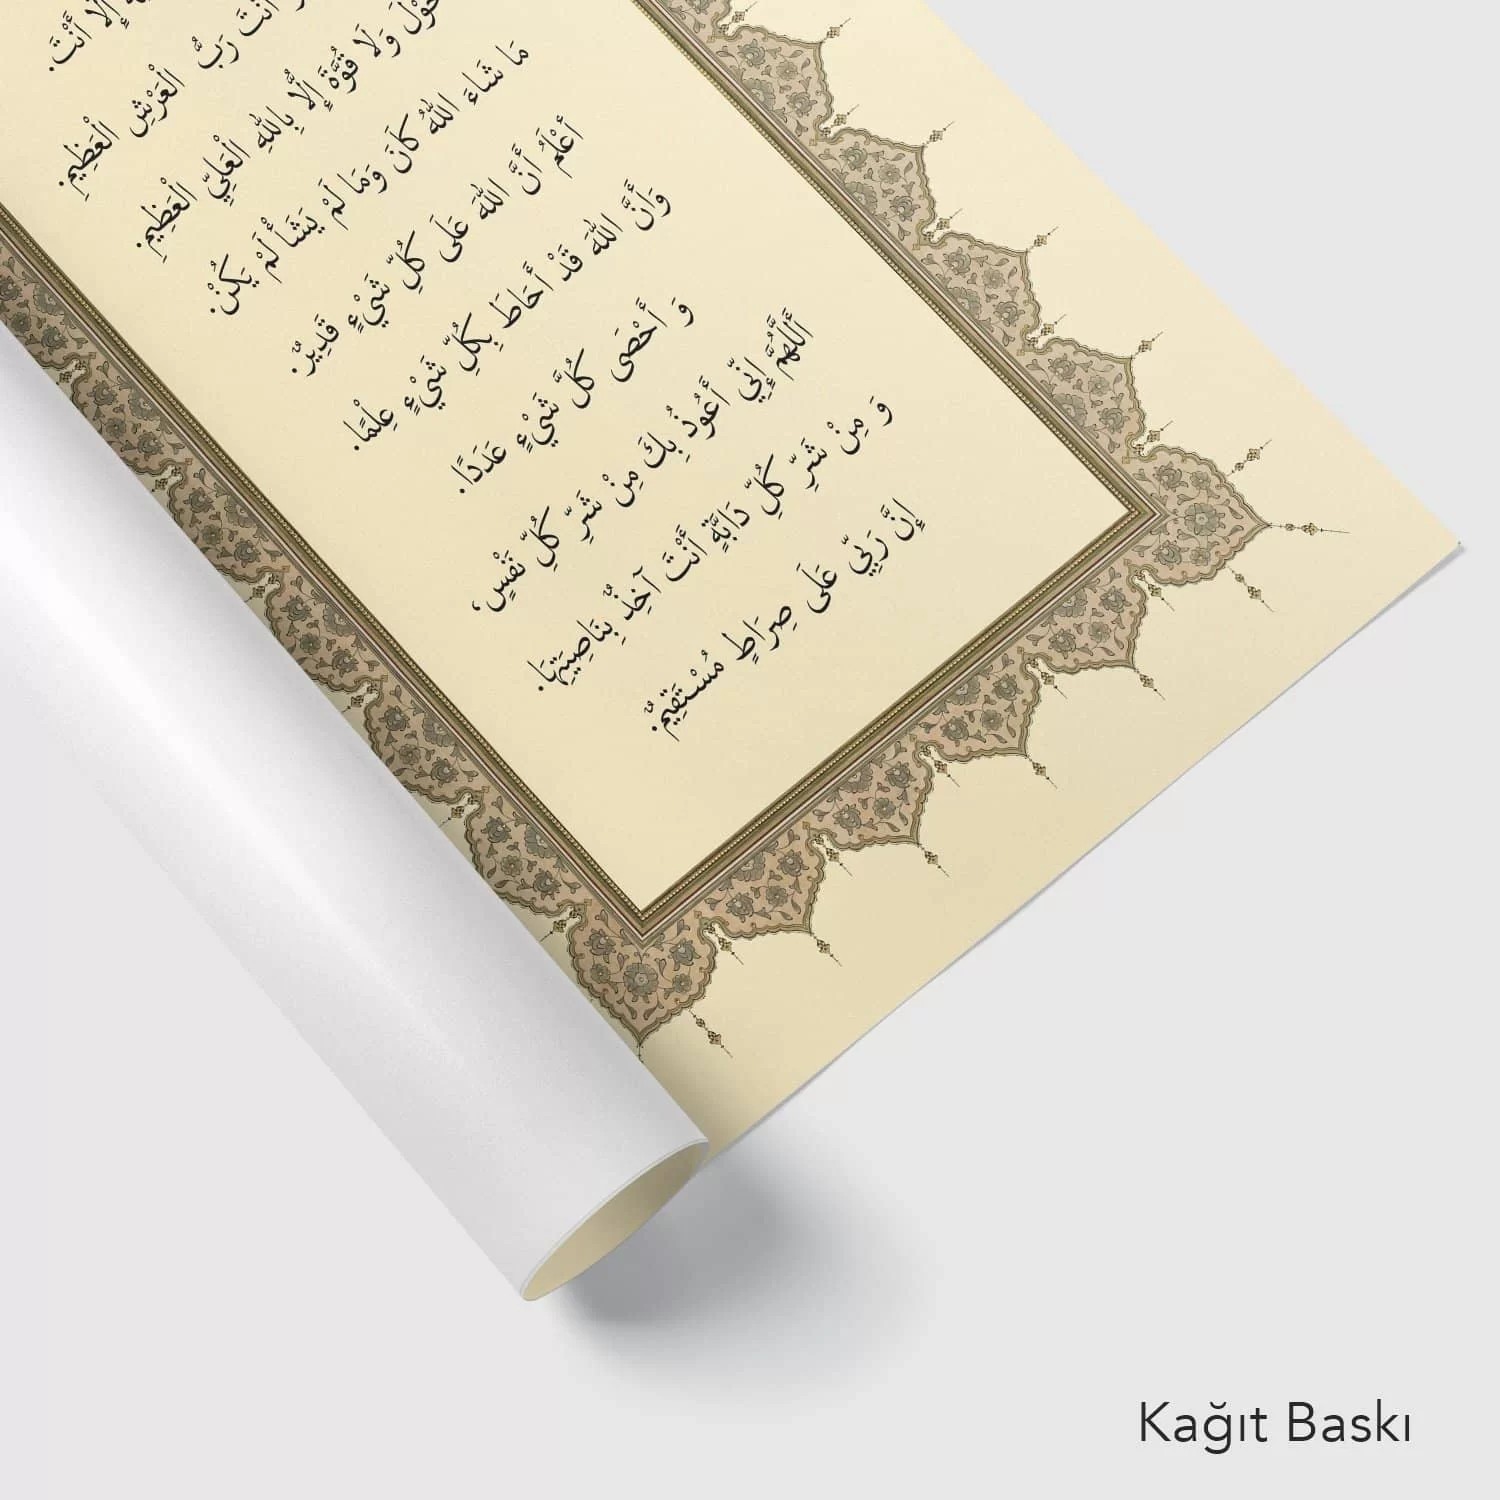 إِلَّا أَنْتَ.
أَنْتَ رَبُّ الْعَرْشِ الْعَظِيمِ.
حَوْلَ وَلَا قُوَّةَ إِلَّا بِاللّٰهِ الْعَلِيِّ الْعَظِيمِ.
مَا شَاءَ اللّٰهُ كَانَ وَمَا لَمْ يَشَأْ لَمْ يَكُنْ.
أَعْلَمُ أَنَّ اللّٰهَ عَلَى كُلِّ شَيْءٍ قَدِيرٌ.
وَأَنَّ اللّٰهَ قَدْ أَحَاطَ بِكُلِّ شَيْءٍ عِلْمًا.
وَ أَحْصَى كُلَّ شَيْءٍ عَدَدًا.
أَللّٰهُمَّ إِنِّي أَعُوذُ بِكَ مِنْ شَرِّ كُلِّ نَفْسٍ،
وَ مِنْ شَرِّ كُلِّ دَابَّةٍ أَنْتَ آخِذٌ بِنَاصِيَتِهَا.
إِنَّ رَبِّي عَلَى صِرَاطٍ مُسْتَقِيمٌ.
Kağıt Baskı